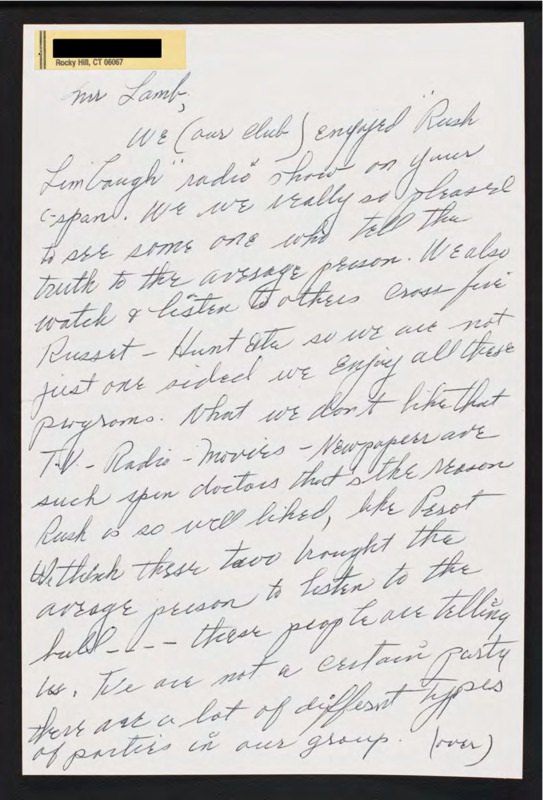 Rocky Hill, CT 06067
Mr Lamb,
We (our club) enjoyed "Rush
Limbaugh" radio show on your
c-span. We we really so pleased
to see some one who tell the
truth to the average person. We also
watch & listen to others cross fire
Russet - Hunt etc so we are not
just one sided we enjoy all these
programs. What we don't like that
T.V. - Radio - Movies - Newspapers are
such spin doctors that's the reason
Rush is so well liked, like Perot
We think these two brought the
average person to listen to the
bull---- these people are telling
us. We are not a certain party
there are a lot of different types
of parties in our group. (over)